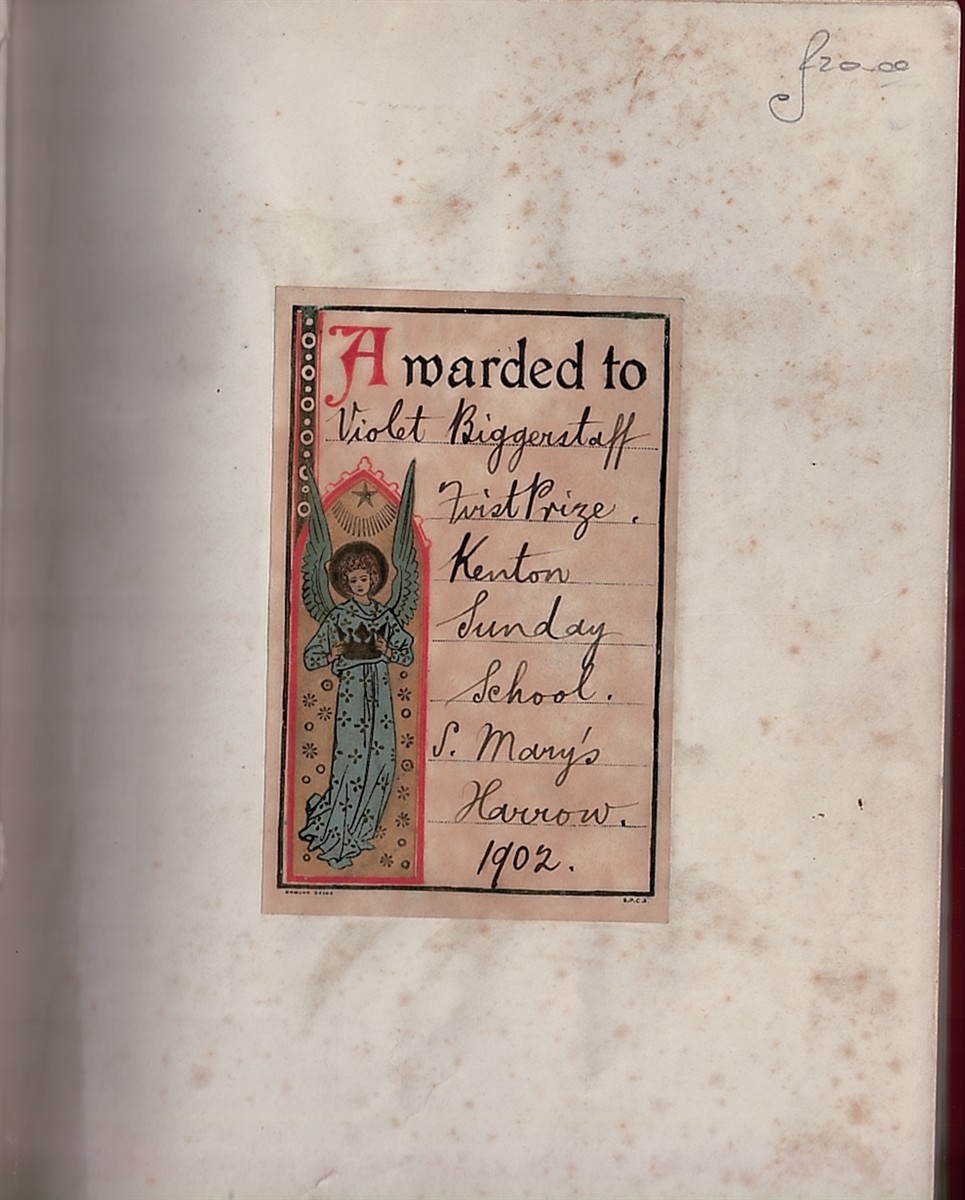 Awarded to
Violet Biggerstaff
First Prize.
Kenton
Sunday
School.
S. Mary's
Harrow.
1902.
S.P.C.K.